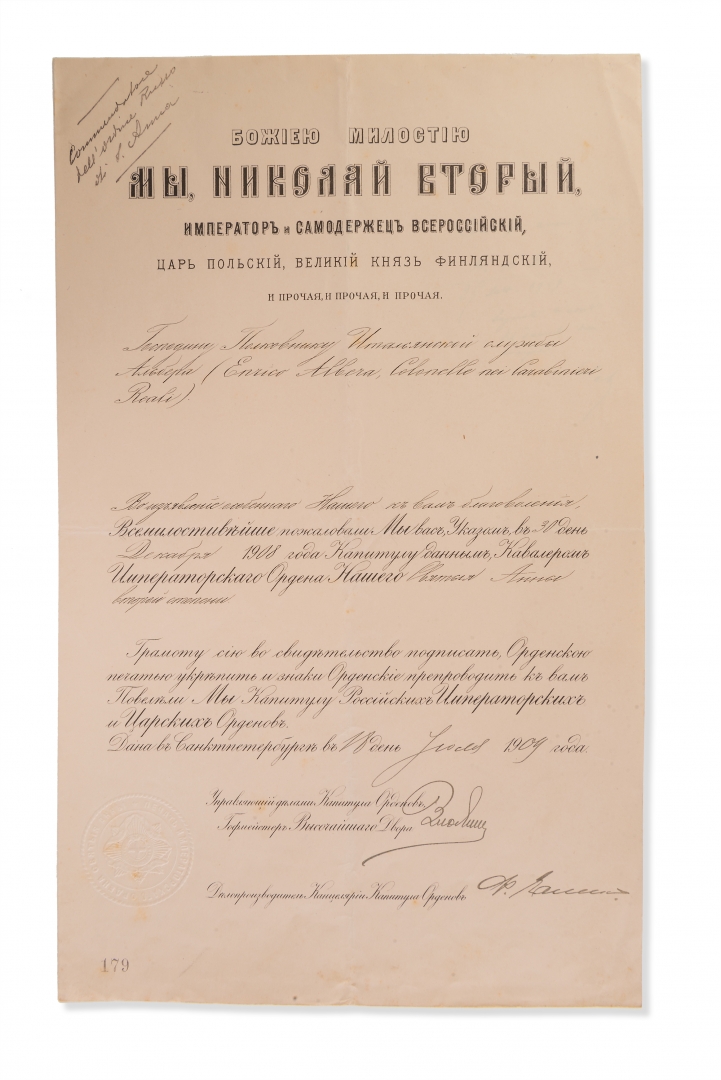 Commendatore
dell'ordine Russo
di S. Anna
БОЖІЕЮ МИЛОСТІЮ
МЫ, НИКОЛАЙ ВТОРЫЙ,
ИМПЕРАТОРЪ и САМОДЕРЖЕЦЪ ВСЕРОССІЙСКІЙ,
ЦАРЬ ПОЛЬСКІЙ, ВЕЛИКІЙ КНЯЗЬ ФИНЛЯНДСКІЙ,
И ПРОЧАЯ, И ПРОЧАЯ, И ПРОЧАЯ.
Господину Полковнику Итальянской службы
Альбера (Enrico Albera, Colonello nei Carabinieri
Reali).
Во изъявленіе особеннаго Нашего къ вамъ благоволенія,
Всемилостивѣйше пожаловали Мы васъ, Указомъ, въ 30 день
Декабря 1908 года Капитулу даннымъ, Кавалеромъ
Императорскаго Ордена Нашего Святыя Анны
второй степени
Грамоту сію во свидѣтельство подписать, Орденскою
печатью укрѣпить и знаки Орденскіе препроводить къ вамъ
Повелѣли Мы Капитулу Россійскихъ Императорскихъ
и Царскихъ Орденовъ.
Дана въ Санктпетербургѣ въ 18 день Іюля 1909 года.
Управляющій дѣлами Капитула Орденовъ,
Гофмейстеръ Высочайшаго Двора
Дѣлопроизводитель Канцеляріи Капитула Орденовъ
179